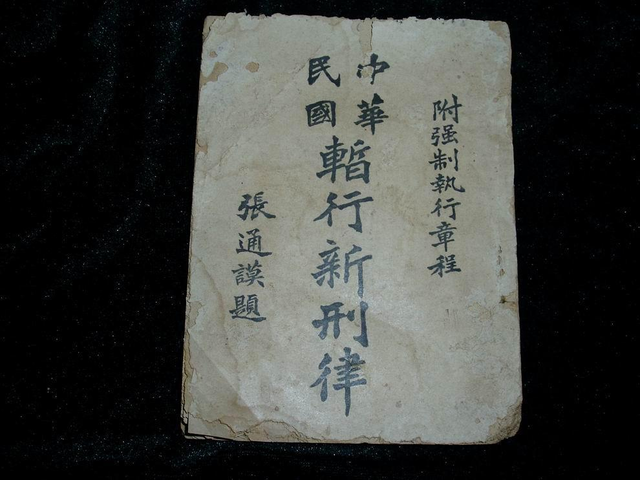 附强制執行章程
中華民國暫行新刑律
張通謨題